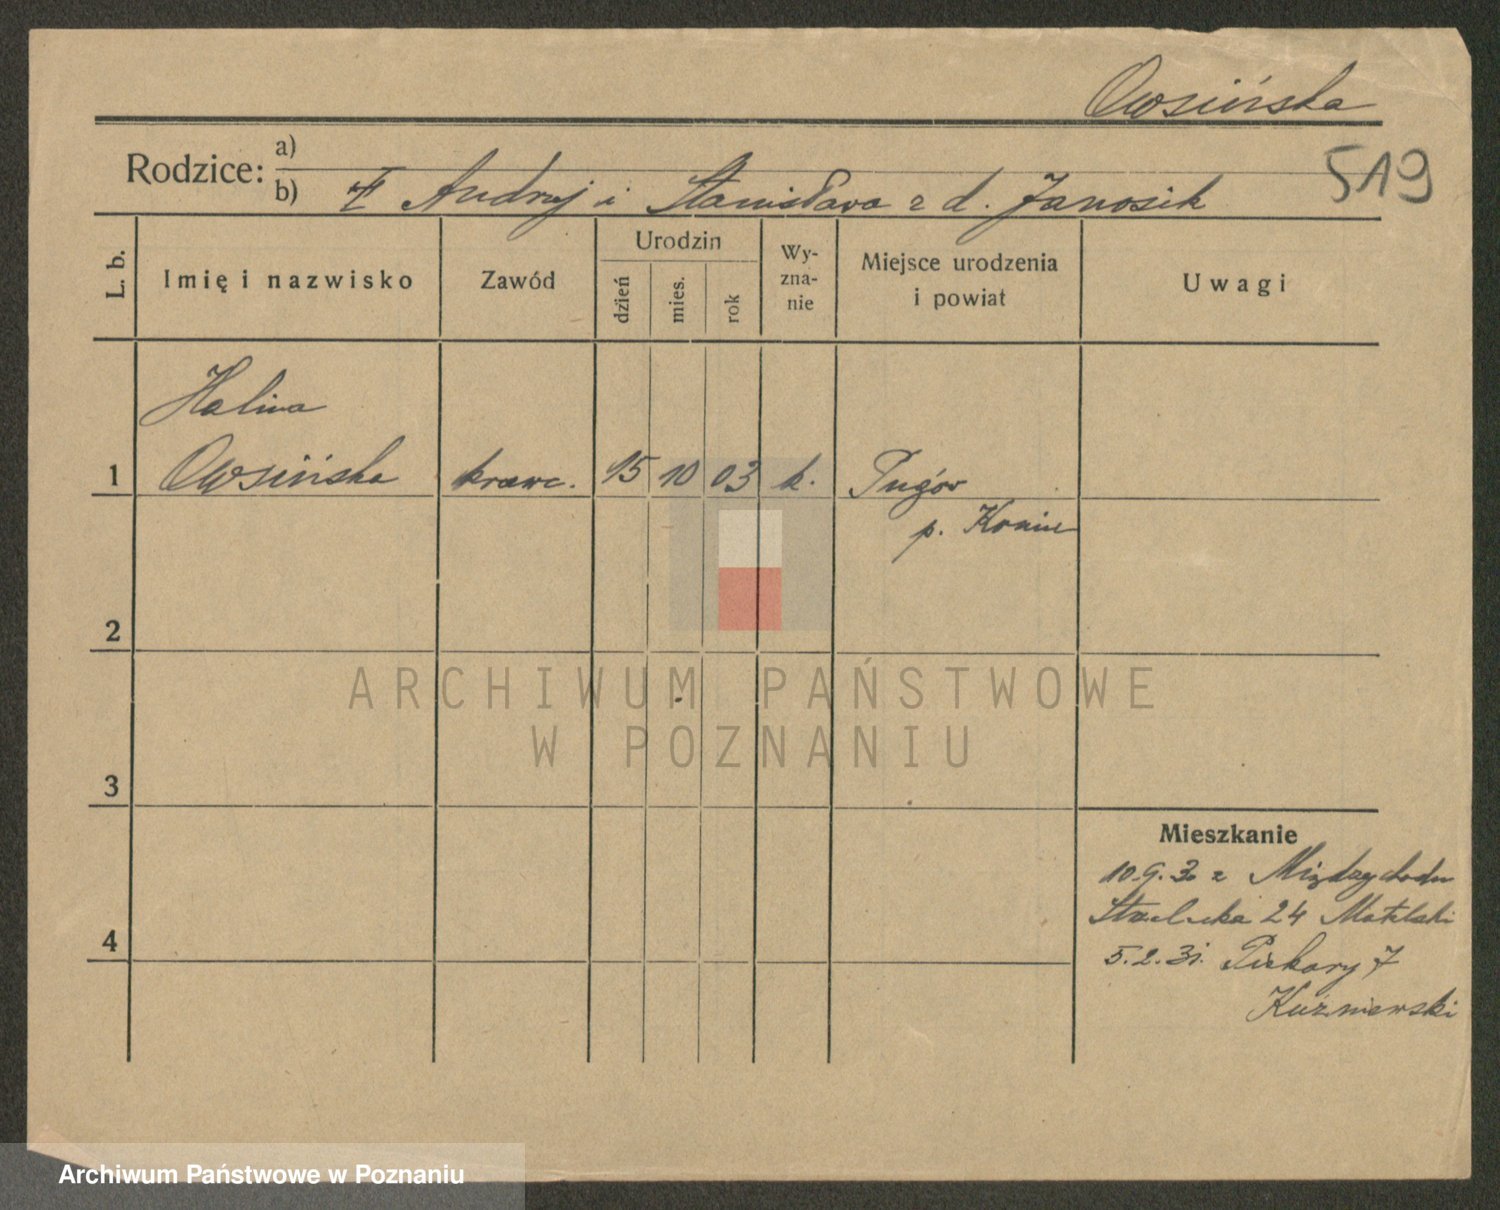 Owsińska
519
Rodzice: a)
b) Andrzej i Stanisława z d. Janosik
L. b.
Imię i nazwisko
Zawód
Urodzin
dzień
mies.
rok
Wy-
zna-
nie
Miejsce urodzenia
i powiat
Uwagi
Halina
1 Owsińska krawc. 15 10 03 k.
p. Konin
2
3
4
Mieszkanie
10.9.30 z Międzychodu
24
5.2.31. Piekary 7
Kuźniewski
ARCHIWUM PAŃSTWOWE
W POZNANIU
Archiwum Państwowe w Poznaniu